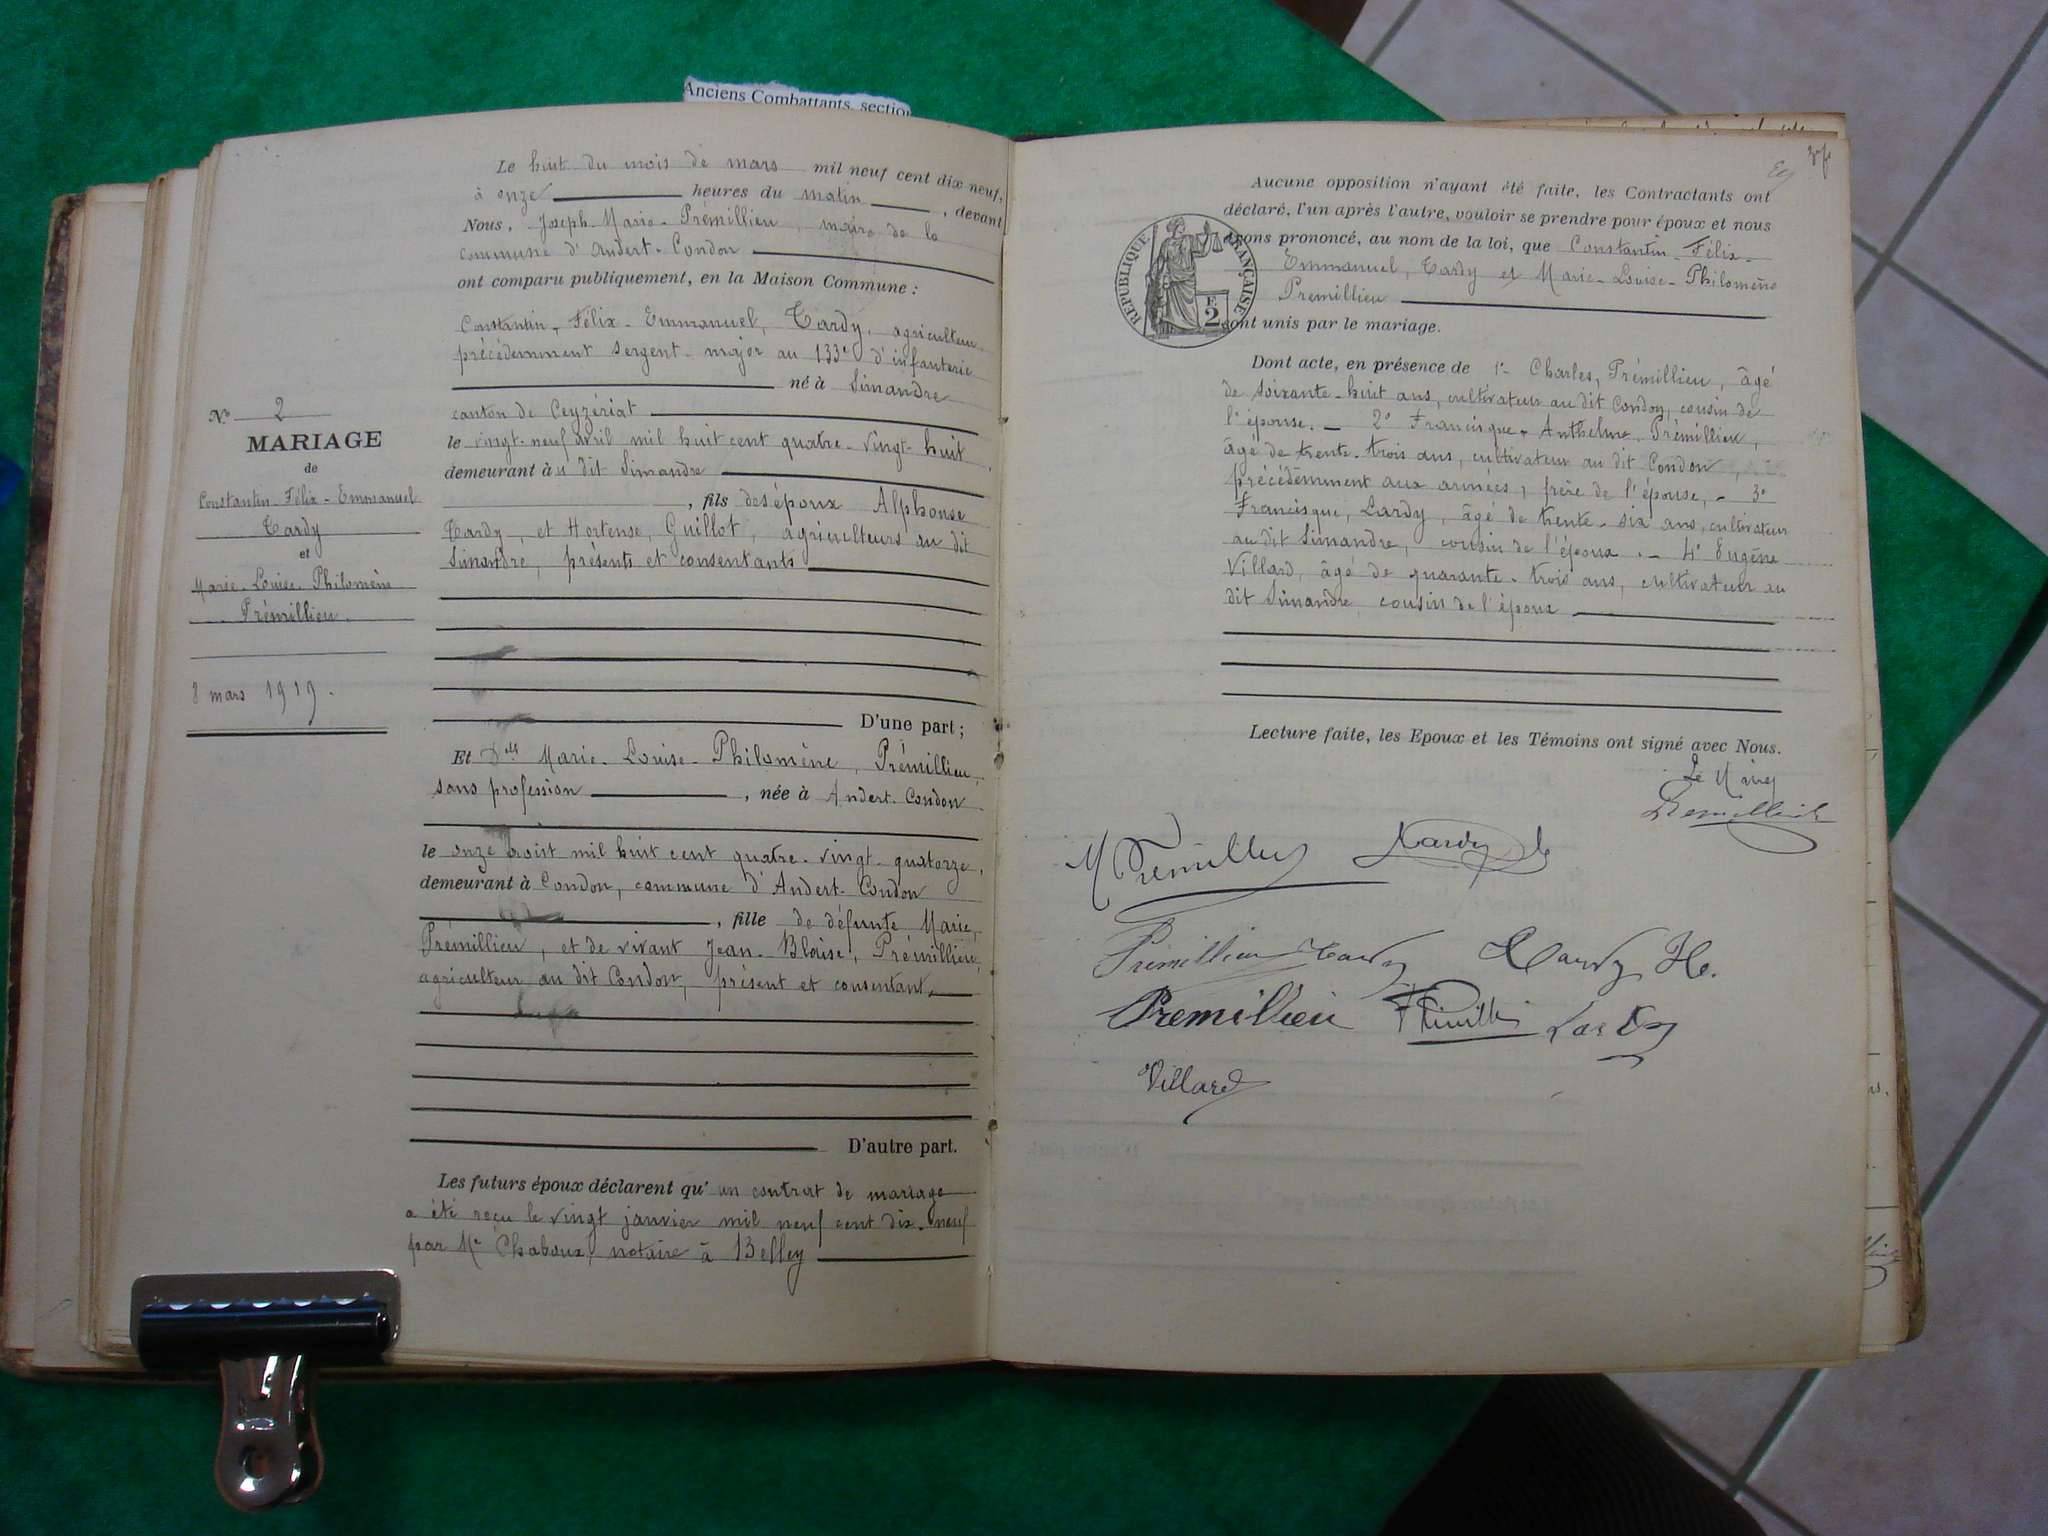 Anciens Combattants, section
Le huit du mois de mars mil neuf cent dix neuf,
à onze heures du matin, devant
Nous, Joseph-Marie-Prémillieu, maire de la
commune d'Andert-Condon
ont comparu publiquement, en la Maison Commune :
Constantin-Félix-Emmanuel, Tardy, agriculteur
précédemment sergent-major au 133e d'infanterie
né à Simandre
canton de Ceyzériat
le vingt-neuf avril mil huit cent quatre-vingt-huit
demeurant au dit Simandre
, fils des époux Alphonse
Tardy, et Hortense, Guillot, agriculteurs au dit
Simandre, présents et consentants
D'une part ;
Et Dlle Marie-Louise-Philomène, Prémillieu,
sans profession, née à Andert-Condon
le onze août mil huit cent quatre-vingt-quatorze,
demeurant à Condon, commune d'Andert-Condon
, fille de défunte Marie,
Prémillieu, et de vivant Jean-Blaise, Prémillieu,
agriculteur au dit Condon, présent et consentant,
D'autre part.
Les futurs époux déclarent qu'un contrat de mariage
a été reçu le vingt janvier mil neuf cent dix-neuf
par Me Chaboux, notaire à Belley
No 2
MARIAGE
de
Constantin-Félix-Emmanuel
Tardy
et
Marie-Louise-Philomène
Prémillieu
8 mars 1919.
Aucune opposition n'ayant été faite, les Contractants ont
déclaré, l'un après l'autre, vouloir se prendre pour époux et nous
avons prononcé, au nom de la loi, que Constantin-Félix-
Emmanuel, Tardy et Marie-Louise-Philomène
Premillieu
sont unis par le mariage.
RÉPUBLIQUE FRANÇAISE
E
2
Dont acte, en présence de 1º Charles, Prémillieu, âgé
de soixante-huit ans, cultivateur au dit Condon, cousin de
l'épouse. — 2º Francisque-Anthelme, Prémillieu,
âgé de trente-trois ans, cultivateur au dit Condon,
précédemment aux armées, frère de l'épouse, - 3º
Francisque, Lardy, âgé de trente-six ans, cultivateur
au dit Simandre, cousin de l'époux. — 4º Eugène
Villard, âgé de quarante-trois ans, cultivateur au
dit Simandre cousin de l'époux
Lecture faite, les Epoux et les Témoins ont signé avec Nous.
Le Maire
Premillieu
M Premillieu Tardy
Prémillieu Tardy Tardy H.
Premillieu Lardy
Villard